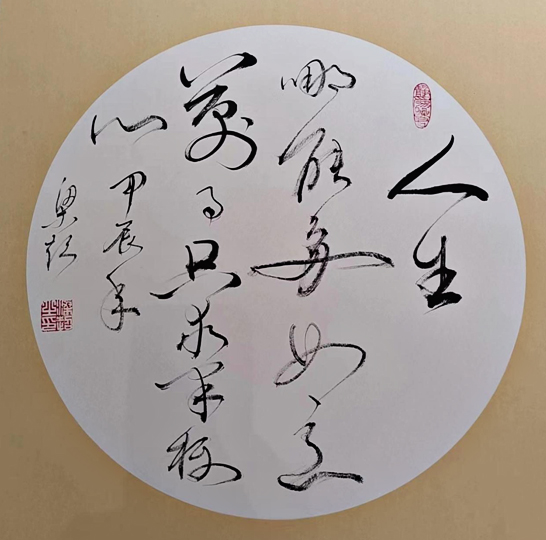 人生
哪能每如意
萬事只求半称
心 甲辰年
梁